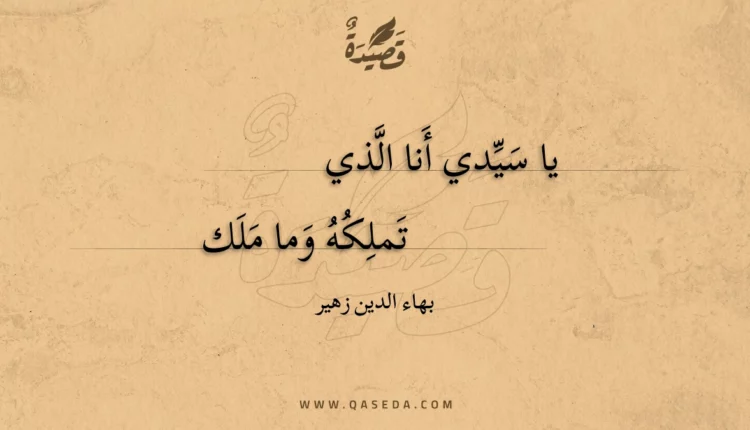 قَصِيدَةٌ
يا سَيِّدي أَنا الَّذي
تَملِكُهُ وَما مَلَك
بهاء الدين زهير
WWW.QASEDA.COM